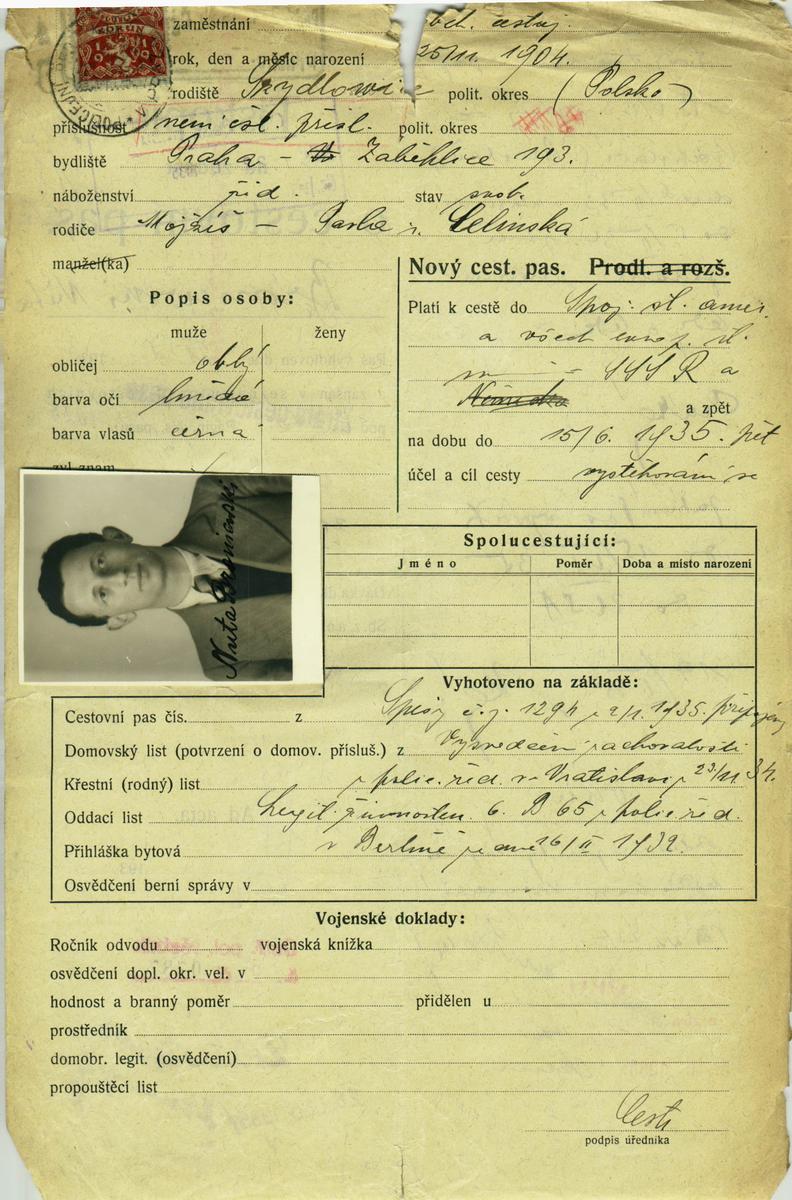 zaměstnání obch. cestuj.
rok, den a měsíc narození 25/11. 1904.
rodiště Szydlowice polit. okres (Polsko)
příslušnost není čsl. přísl. polit. okres
bydliště Praha – Záběhlice 193.
náboženství žid. stav svob.
rodiče Mojžíš – Perla r. Zelinská
manžel(ka)
Nový cest. pas. Prodl. a rozš.
Popis osoby:
muže ženy
obličej oblý
barva očí hnědé
barva vlasů černá
zvl. znam.
Platí k cestě do Spoj. st. amer.
a všech evrop. st.
SSSR a
Německa a zpět
na dobu do 15/6. 1935. pět
účel a cíl cesty vystěhování se
Nuta Broniawski
Spolucestující:
Jméno Poměr Doba a místo narození
Vyhotoveno na základě:
Cestovní pas čís. z Spisy č.j. 1294 z 2/1. 1935. připojeny
Domovský list (potvrzení o domov. přísluš.) z Vysvědčení zachovalosti
Křestní (rodný) list z polic. řed. ve Vratislavi z 23/11. 34.
Oddací list Legit. živnosten. č. B 65 z polic. řed.
Přihláška bytová v Berlíně ze dne 16/II 1932.
Osvědčení berní správy v
Vojenské doklady:
Ročník odvodu vojenská knížka
osvědčení dopl. okr. vel. v
hodnost a branný poměr přidělen u
prostředník
domobr. legit. (osvědčení)
propouštěcí list
podpis úředníka